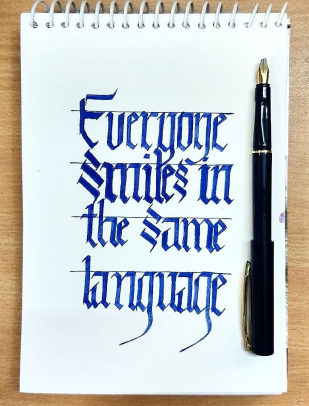 Everyone
smiles in
the same
language